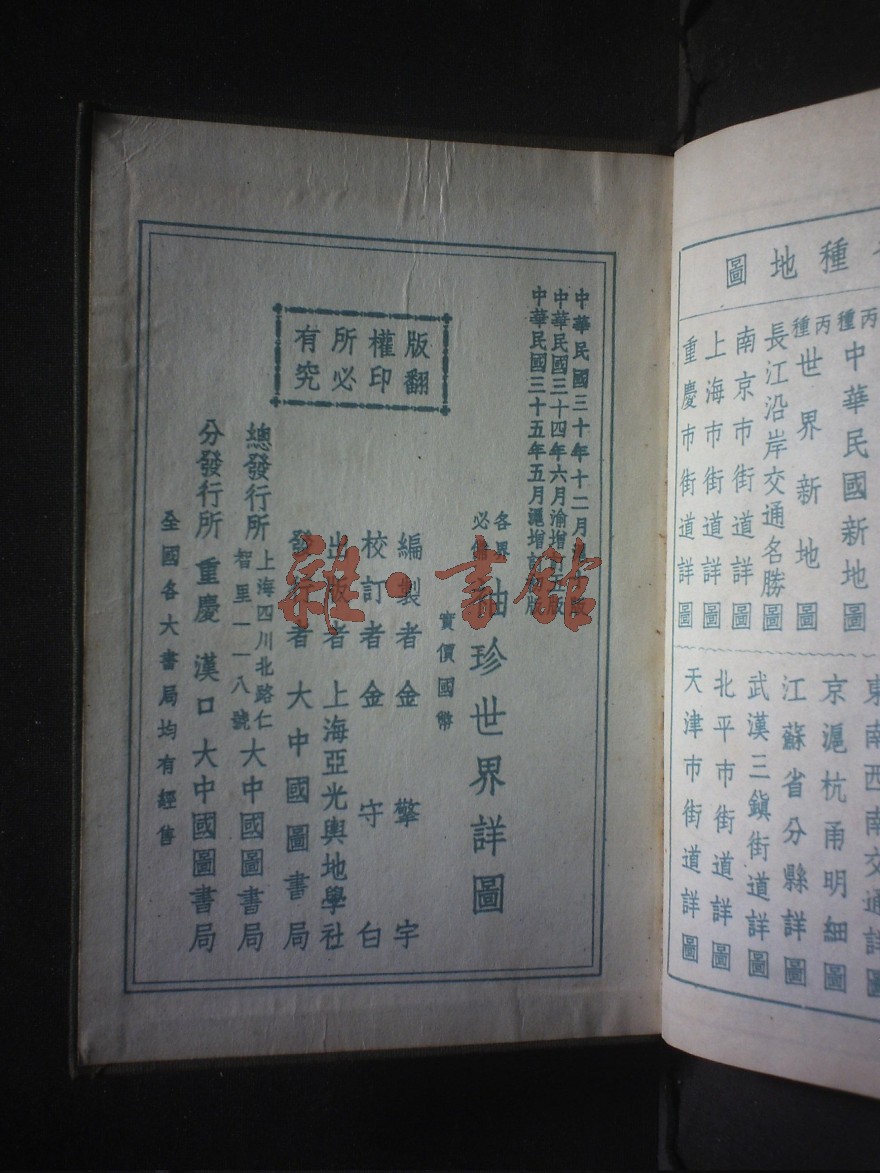 中華民國三十年十二月
中華民國三十四年六月渝增
中華民國三十五年五月滬增訂
各界必備
袖珍世界詳圖
實價國幣
編製者 金擎宇
校訂者 金守白
出版者 上海亞光輿地學社
發行者 大中國圖書局
總發行所 上海四川北路仁智里一一八號 大中國圖書局
分發行所 重慶 漢口 大中國圖書局
全國各大書局均有經售
版權所有
翻印必究
種地圖
丙種 中華民國新地圖
丙種 世界新地圖
長江沿岸交通名勝圖
南京市街道詳圖
上海市街道詳圖
重慶市街道詳圖
東南西南交通詳圖
京滬杭甬明細圖
江蘇省分縣詳圖
武漢三鎮街道詳圖
北平市街道詳圖
天津市街道詳圖
雜·書館